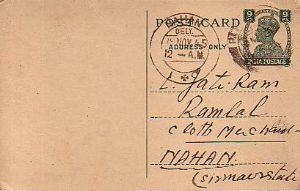 POST CARD
ADDRESS ONLY
9 9
INDIA POSTAGE
DELY.
NOV.45
12 - A.M.
L. Jati Ram
Ramlal
Cloth Merchant
NAHAN
(Sirmur State